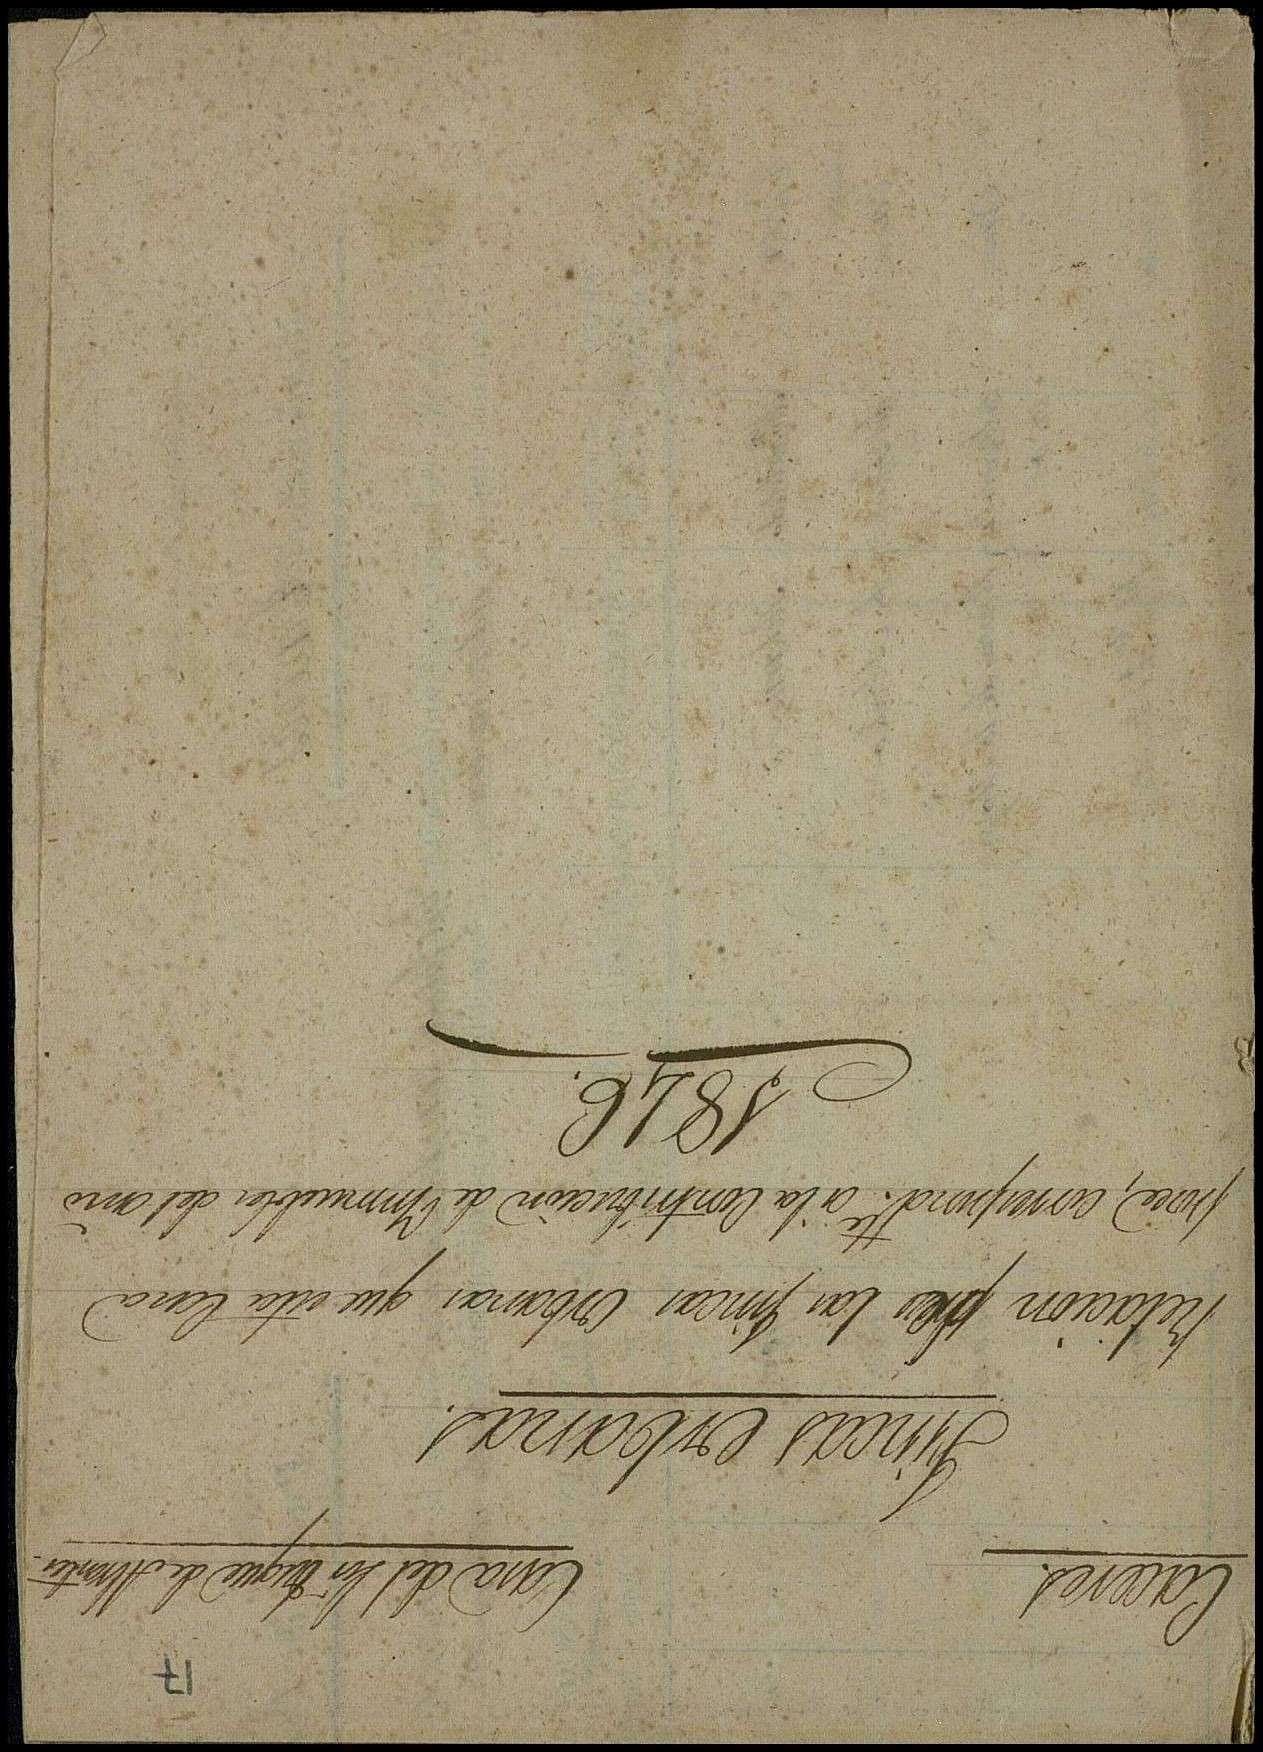 17
Caceres. Casa del Sor Duque de Abrantes.
Fincas Urbanas.
Relacion de las fincas Urbanas que esta Casa
posee, correspondte. a la Contribucion de Ynmuebles del año
1846.